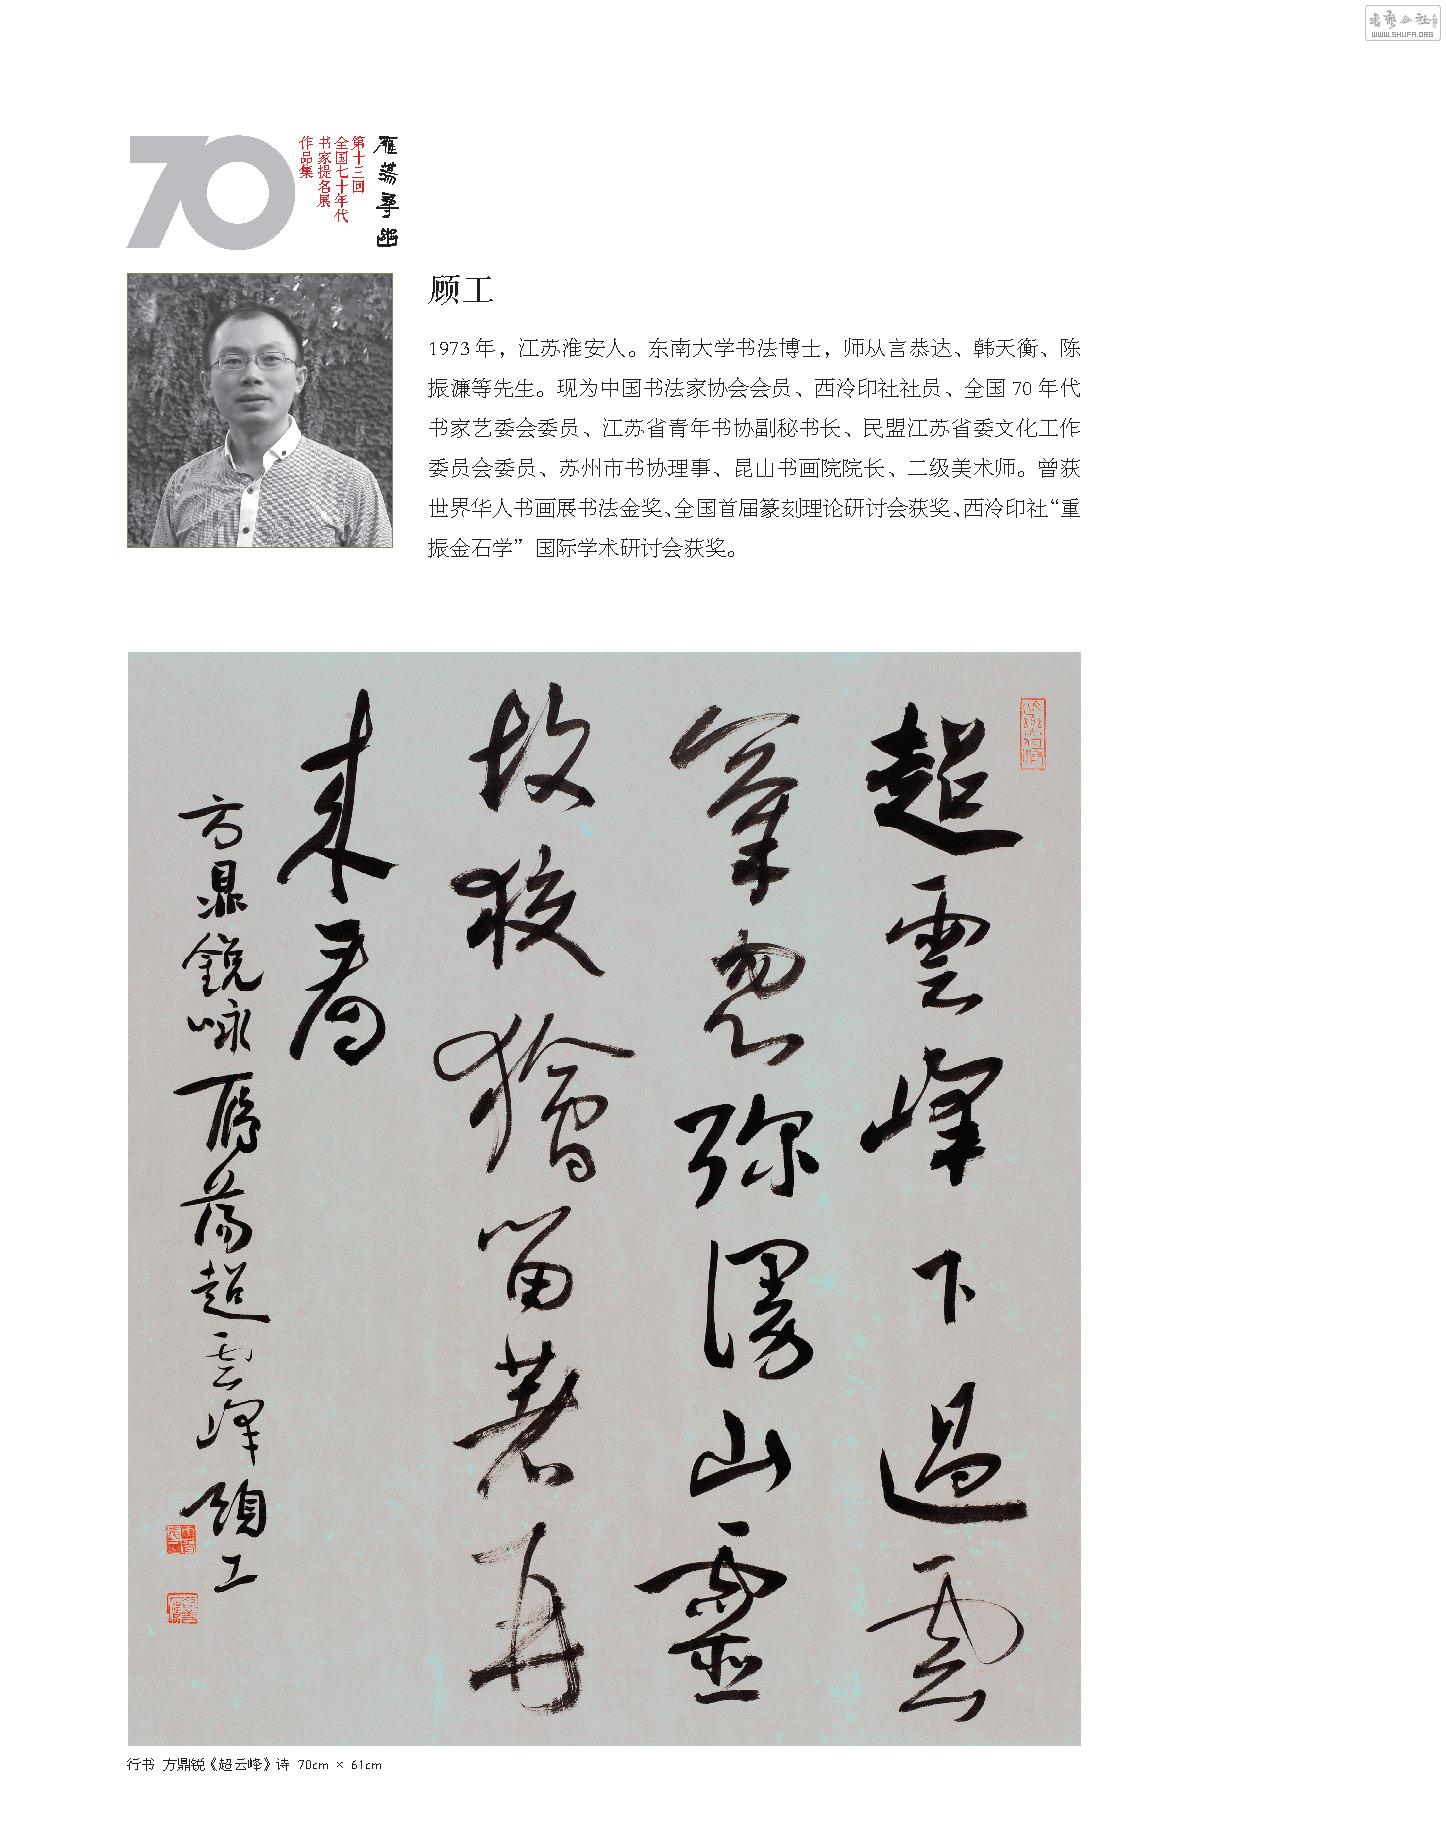 WWW.SHUFA.ORG
70
雁荡寻幽
第十三回
全国七十年代
书家提名展
作品集
顾工
1973 年，江苏淮安人。东南大学书法博士，师从言恭达、韩天衡、陈
振濂等先生。现为中国书法家协会会员、西泠印社社员、全国 70 年代
书家艺委会委员、江苏省青年书协副秘书长、民盟江苏省委文化工作
委员会委员、苏州市书协理事、昆山书画院院长、二级美术师。曾获
世界华人书画展书法金奖、全国首届篆刻理论研讨会获奖、西泠印社“重
振金石学”国际学术研讨会获奖。
超雲峰下過雲
峯忽弥漫山靈
故狡獪留著再
来看
方鼎鋭咏雁荡超雲峰 顾工
行书 方鼎锐《超云峰》诗 70cm × 61cm